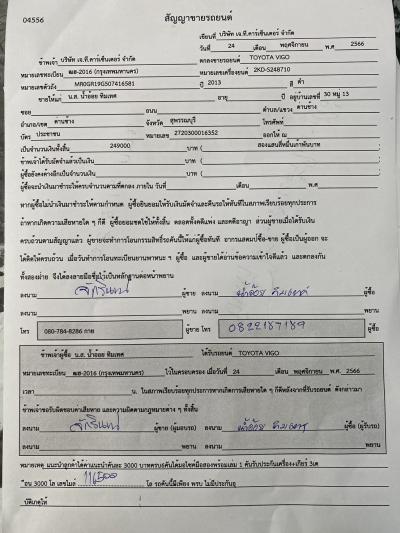 04556
สัญญาขายรถยนต์
เขียนที่ บริษัท เจ.ที.คาร์เซ็นเตอร์ จำกัด
วันที่ 24 เดือน พฤศจิกายน พ.ศ. 2566
ข้าพเจ้า บริษัท เจ.ที.คาร์เซ็นเตอร์ จำกัด ตกลงขายรถยนต์ TOYOTA VIGO
หมายเลขทะเบียน ฒฮ-2016 (กรุงเทพมหานคร) หมายเลขเครื่องยนต์ 2KD-S248710
หมายเลขตัวถัง MR0GR19G507416581 ปี 2013 สี ดำ
ขายให้แก่ น.ส. น้ำอ้อย ทิมเทศ อายุ ปี อยู่บ้านเลขที่ 30 หมู่ 13
ซอย ถนน ตำบล/แขวง ด่านช้าง
อำเภอ/เขต ด่านช้าง จังหวัด สุพรรณบุรี โทรศัพท์
บัตร ประชาชน หมายเลข 2720300016352 ออกให้ ณ
เป็นจำนวนเงินทั้งสิ้น 249000 บาท ( สองแสนสี่หมื่นเก้าพันบาท
ข้าพเจ้าได้รับมัดจำแล้วเป็นเงิน บาท (
ผู้ซื้อยังคงค้างอีกเป็นจำนวนเงิน บาท (
ผู้ซื้อจะนำเงินมาชำระให้ครบจำนวนตามที่ตกลง ภายใน วันที่ เดือน พ.ศ.
หากผู้ซื้อไม่นำเงินมาชำระให้ตามกำหนด ผู้ซื้อยินยอมให้ริบเงินมัดจำและคืนรถให้ทันทีในสภาพเรียบร้อยทุกประการ
ถ้าหากเกิดความเสียหายใด ๆ ก็ดี ผู้ซื้อยอมชดใช้ให้ทั้งสิ้น ตลอดทั้งคดีแพ่ง และคดีอาญา ส่วนผู้ขายเมื่อได้รับเงิน
ครบถ้วนตามสัญญาแล้ว ผู้ขายจะทำการโอนกรรมสิทธิ์รถคันนี้ให้แก่ผู้ซื้อทันที อากรแสตมป์ซื้อ-ขาย ผู้ซื้อเป็นผู้ออก จะ
ได้คิดให้ครบถ้วน เมื่อวันทำการโอนทะเบียนยานพาหนะ ฯ ผู้ซื้อ และผู้ขายได้อ่านข้อความเข้าใจดีแล้ว และตกลงกัน
ทั้งสองฝ่าย จึงได้ลงลายมือชื่อไว้เป็นหลักฐานต่อหน้าพยาน
ลงนาม ผู้ขาย ลงนาม น้ำอ้อย ทิมเทศ ผู้ซื้อ
ลงนาม พยาน ลงนาม พยาน
โทร 080-784-8286 กาย ผู้ขาย โทร 0822187189 ผู้ซื้อ
ข้าพเจ้าผู้ซื้อ น.ส. น้ำอ้อย ทิมเทศ ได้รับรถยนต์ TOYOTA VIGO
หมายเลขทะเบียน ฒฮ-2016 (กรุงเทพมหานคร) ไว้ในครอบครอง เมื่อวันที่ 24 เดือน พฤศจิกายน พ.ศ. 2566
เวลา น. ในสภาพเรียบร้อยทุกประการหากเกิดการเสียหายใด ๆ ก็ดีหลังจากที่รับรถยนต์ ดังกล่าวมา
ข้าพเจ้าขอรับผิดชอบค่าเสียหาย และความผิดตามกฎหมายต่าง ๆ ทั้งสิ้น
ลงนาม ผู้ขาย (ผู้มอบรถ) ลงนาม น้ำอ้อย ทิมเทศ ผู้ซื้อ (ผู้รับรถ)
ลงนาม พยาน ลงนาม พยาน
หมายเหตุ แนะนำลูกค้าได้ค่าแนะนำคันละ 3000 บาท
3000 โล เลขไมล์ 116500 โล รถคันนี้มีเพียง พรบ ไม่มีประกัน